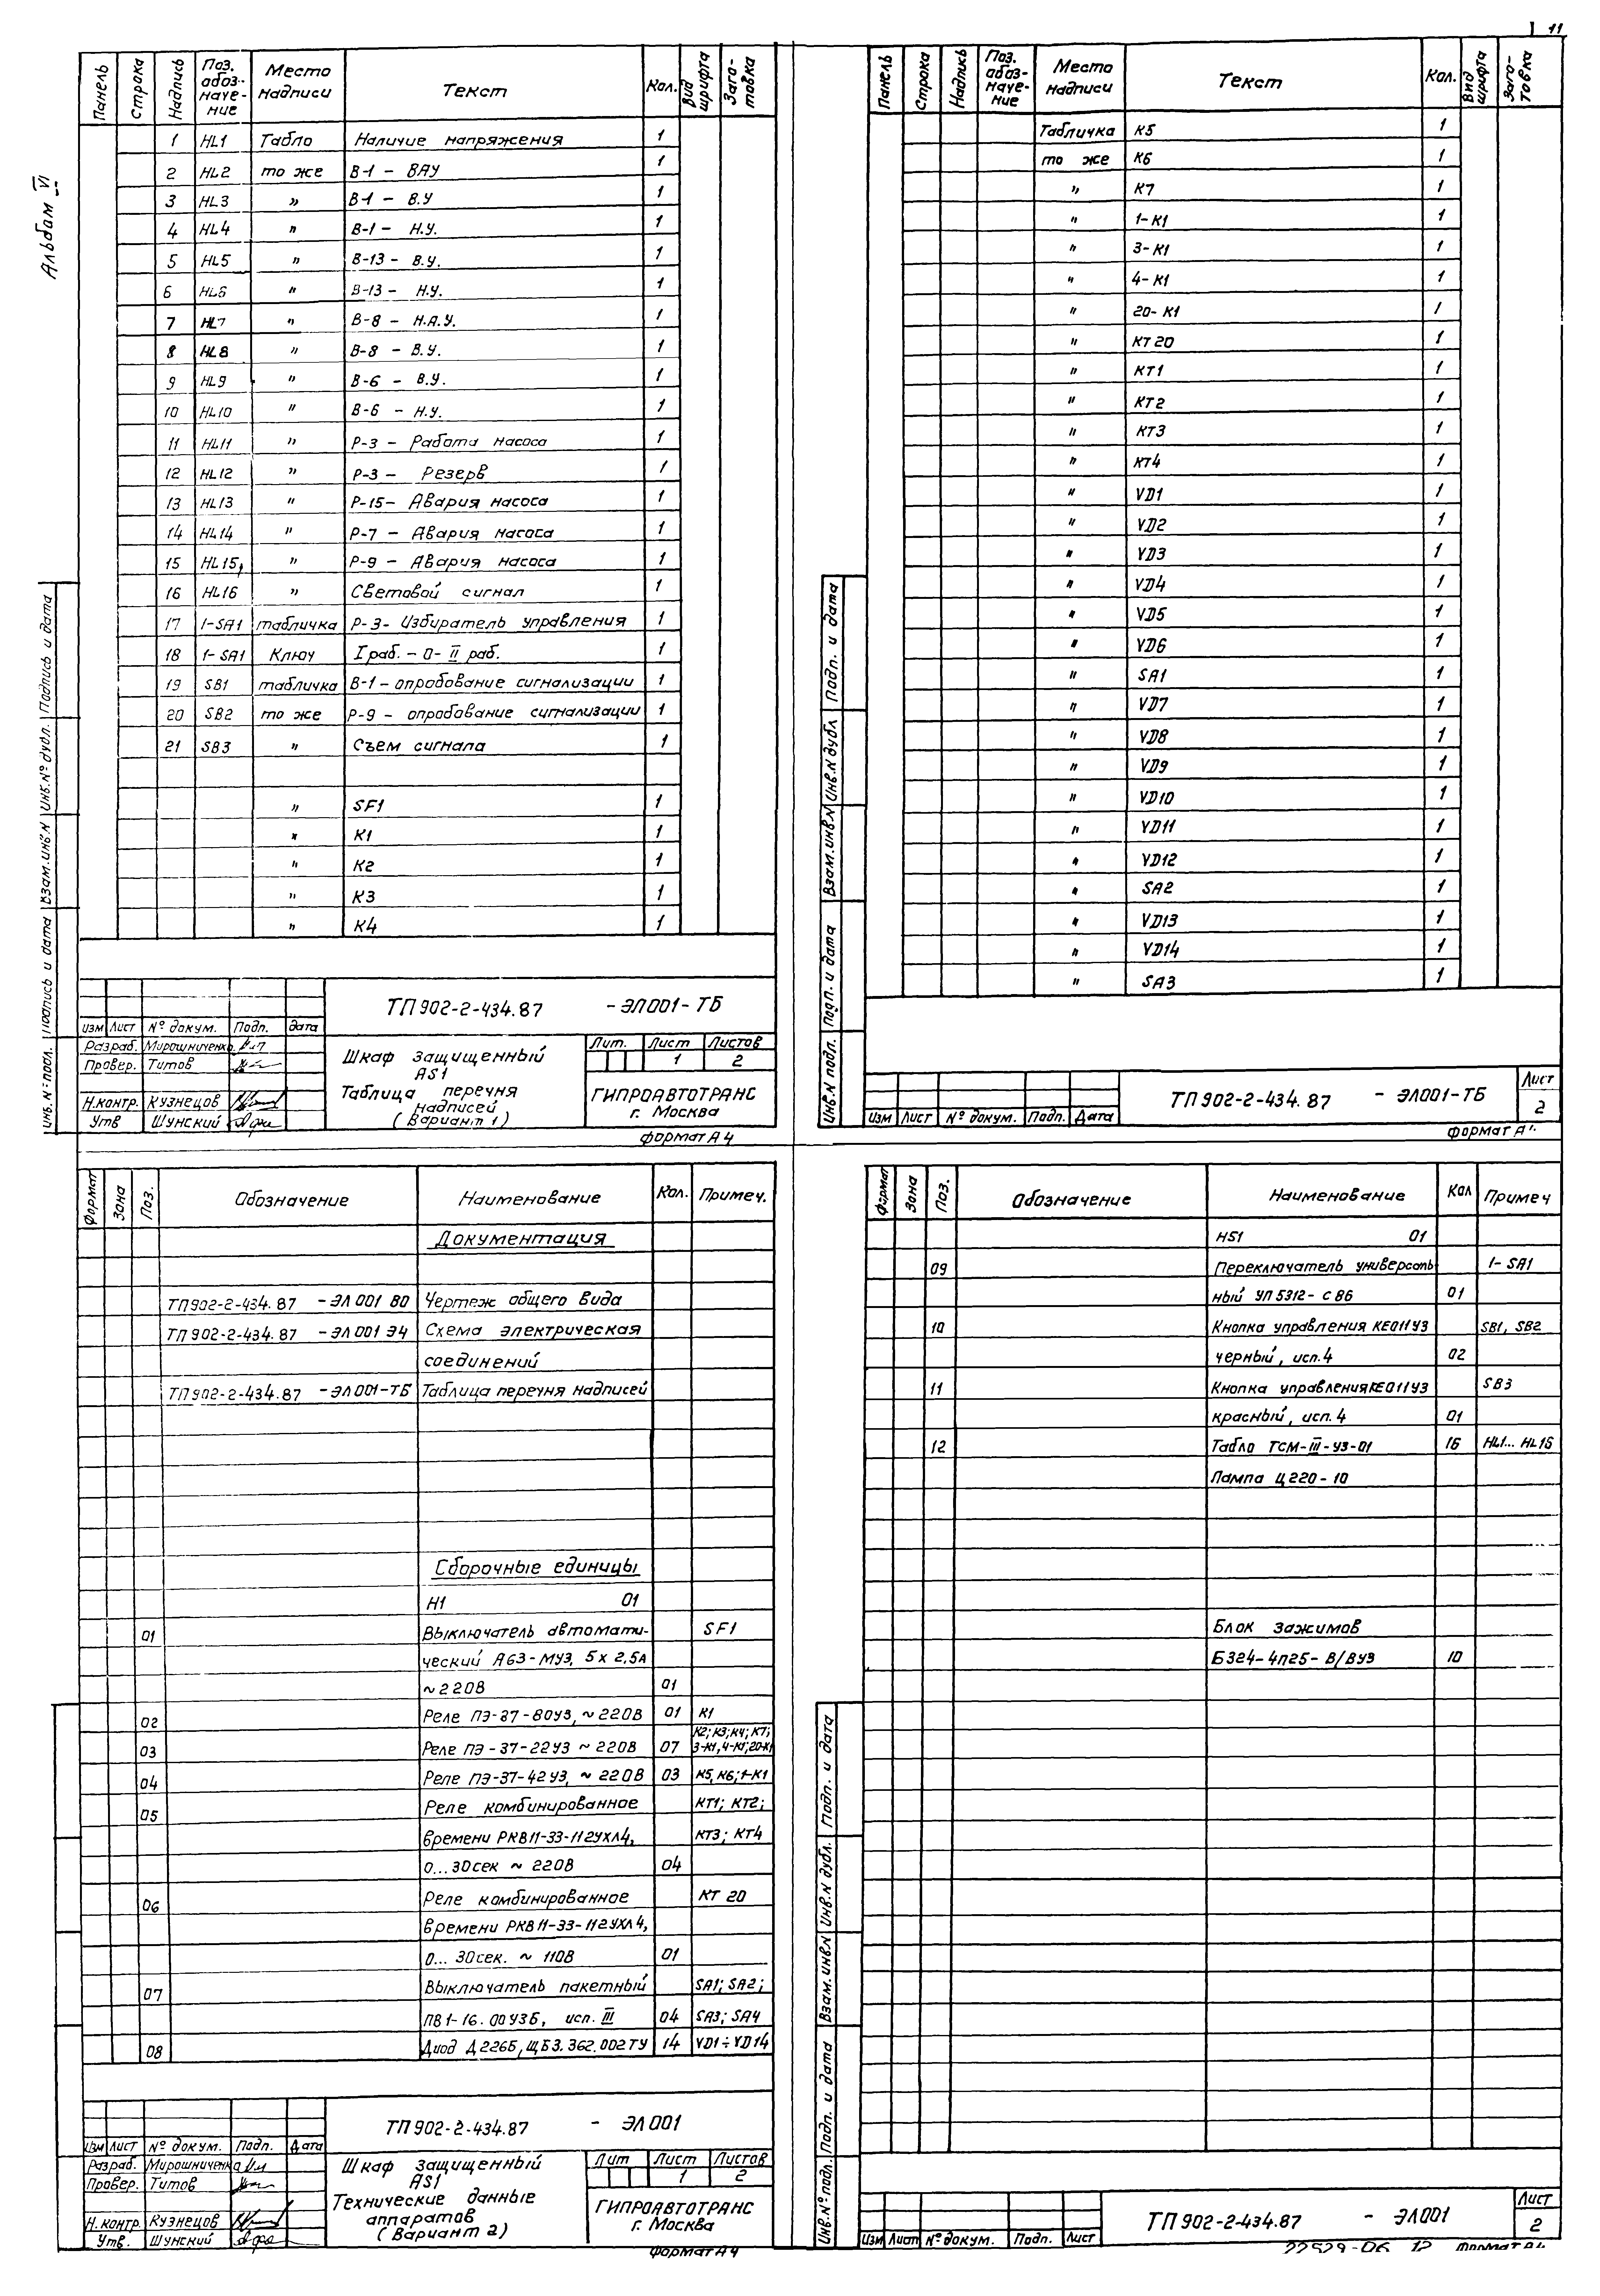 11
Альбом VI
Панель Строка Надпись Поз. обозначение Место надписи Текст Кол. Вид шрифта Заготовка
1 HL1 Табло Наличие напряжения 1
2 HL2 то же В-1 – ВАУ 1
3 HL3 " В-1 – В.У 1
4 HL4 " В-1 – Н.У. 1
5 HL5 " В-13 – В.У. 1
6 HL6 " В-13 – Н.У. 1
7 HL7 " В-8 – Н.А.У. 1
8 HL8 " В-8 – В.У. 1
9 HL9 " В-6 – В.У. 1
10 HL10 " В-6 – Н.У. 1
11 HL11 " Р-3 – Работа насоса 1
12 HL12 " Р-3 – Резерв 1
13 HL13 " Р-15 – Авария насоса 1
14 HL14 " Р-7 – Авария насоса 1
15 HL15 " Р-9 – Авария насоса 1
16 HL16 " Световой сигнал 1
17 1-SA1 табличка Р-3- Избиратель управления 1
18 1-SA1 Ключ I раб. – 0 – II раб. 1
19 SB1 табличка В-1 – опробование сигнализации 1
20 SB2 то же Р-9 – опробование сигнализации 1
21 SB3 " Съем сигнала 1
" SF1 1
" К1 1
" К2 1
" К3 1
" К4 1
ТП 902-2-434.87 -ЭЛ001-ТБ
Изм Лист № докум. Подп. Дата
Разраб. Мирошниченко
Провер. Титов
Н.контр. Кузнецов
Утв Шунский
Шкаф защищенный
AS1
Таблица перечня
надписей
(Вариант 1)
Лит. Лист Листов
1 2
ГИПРОАВТОТРАНС
г. Москва
Формат А4
Инв.№ подл. Подпись и дата Взам.инв.N Инв.№ дубл. Подпись и дата
Панель Строка Надпись Поз. обозначение Место надписи Текст Кол. Вид шрифта Заготовка
Табличка К5 1
то же К6 1
" К7 1
" 1-К1 1
" 3-К1 1
" 4-К1 1
" 20-К1 1
" КТ20 1
" КТ1 1
" КТ2 1
" КТ3 1
" КТ4 1
" VD1 1
" VD2 1
" VD3 1
" VD4 1
" VD5 1
" VD6 1
" SA1 1
" VD7 1
" VD8 1
" VD9 1
" VD10 1
" VD11 1
" VD12 1
" SA2 1
" VD13 1
" VD14 1
" SA3 1
Изм Лист № докум. Подп. Дата
ТП 902-2-434.87 - ЭЛ001-ТБ
Лист
2
Формат А
Инв.N подл. Подп. и дата Взам.инв.N Инв.N дубл Подп. и дата
Формат Зона Поз. Обозначение Наименование Кол. Примеч.
Документация
ТП902-2-434.87 -ЭЛ001 ВО Чертеж общего вида
ТП902-2-434.87 -ЭЛ001 Э4 Схема электрическая
соединений
ТП902-2-434.87 -ЭЛ001-ТБ Таблица перечня надписей
Сборочные единицы
Н1 01
01 Выключатель автомати- SF1
ческий А63-МУЗ, 5х2,5А
~220В 01
02 Реле ПЭ-37-80У3, ~220В 01 К1
03 Реле ПЭ-37-22У3 ~220В 07 К2; К3; К4; К7; 3-К1, 4-К1; 20-К1
04 Реле ПЭ-37-42У3, ~220В 03 К5, К6; 1-К1
05 Реле комбинированное КТ1; КТ2;
времени РКВ11-33-112УХЛ4, КТ3; КТ4
0...30сек ~220В 04
06 Реле комбинированное КТ20
времени РКВ11-33-112УХЛ4,
0...30сек. ~110В 01
07 Выключатель пакетный SA1; SA2;
ПВ1-16.00У3Б, исп. III 04 SA3; SA4
08 Диод Д226Б, ЩБ3.362.002ТУ 14 VD1÷VD14
ТП 902-2-434.87 - ЭЛ001
Изм Лист № докум. Подп. Дата
Разраб. Мирошниченко
Провер. Титов
Н.контр Кузнецов
Утв. Шунский
Шкаф защищенный
AS1
Технические данные
аппаратов
(Вариант 2)
Лит Лист Листов
1 2
ГИПРОАВТОТРАНС
г. Москва
Формат А4
Формат Зона Поз. Обозначение Наименование Кол Примеч
HS1 01
09 Переключатель универсаль- 1-SA1
ный УП5312-С86 01
10 Кнопка управления КЕ011У3 SB1, SB2
черный, исп.4 02
11 Кнопка управления КЕ011У3 SB3
красный, исп.4 01
12 Табло ТСМ-III-У3-01 16 HL1...HL16
Лампа Ц220-10
Блок зажимов
Б324-4П25-В/ВУ3 10
Инв.№ подл. Подп. и дата Взам.инв.N Инв.N дубл. Подп. и дата
Изм Лист № докум. Подп. Лист
ТП 902-2-434.87 - ЭЛ001
Лист
2
22529-06 12 Формат А4